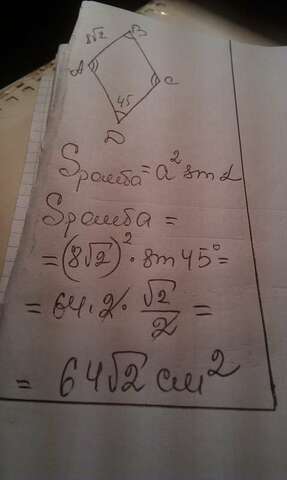 8√2 B
A
C
45
D
Sромба = a² sin α
Sромба =
= (8√2)² · sin 45° =
= 64 · 2 · √2/2 =
= 64√2 см²